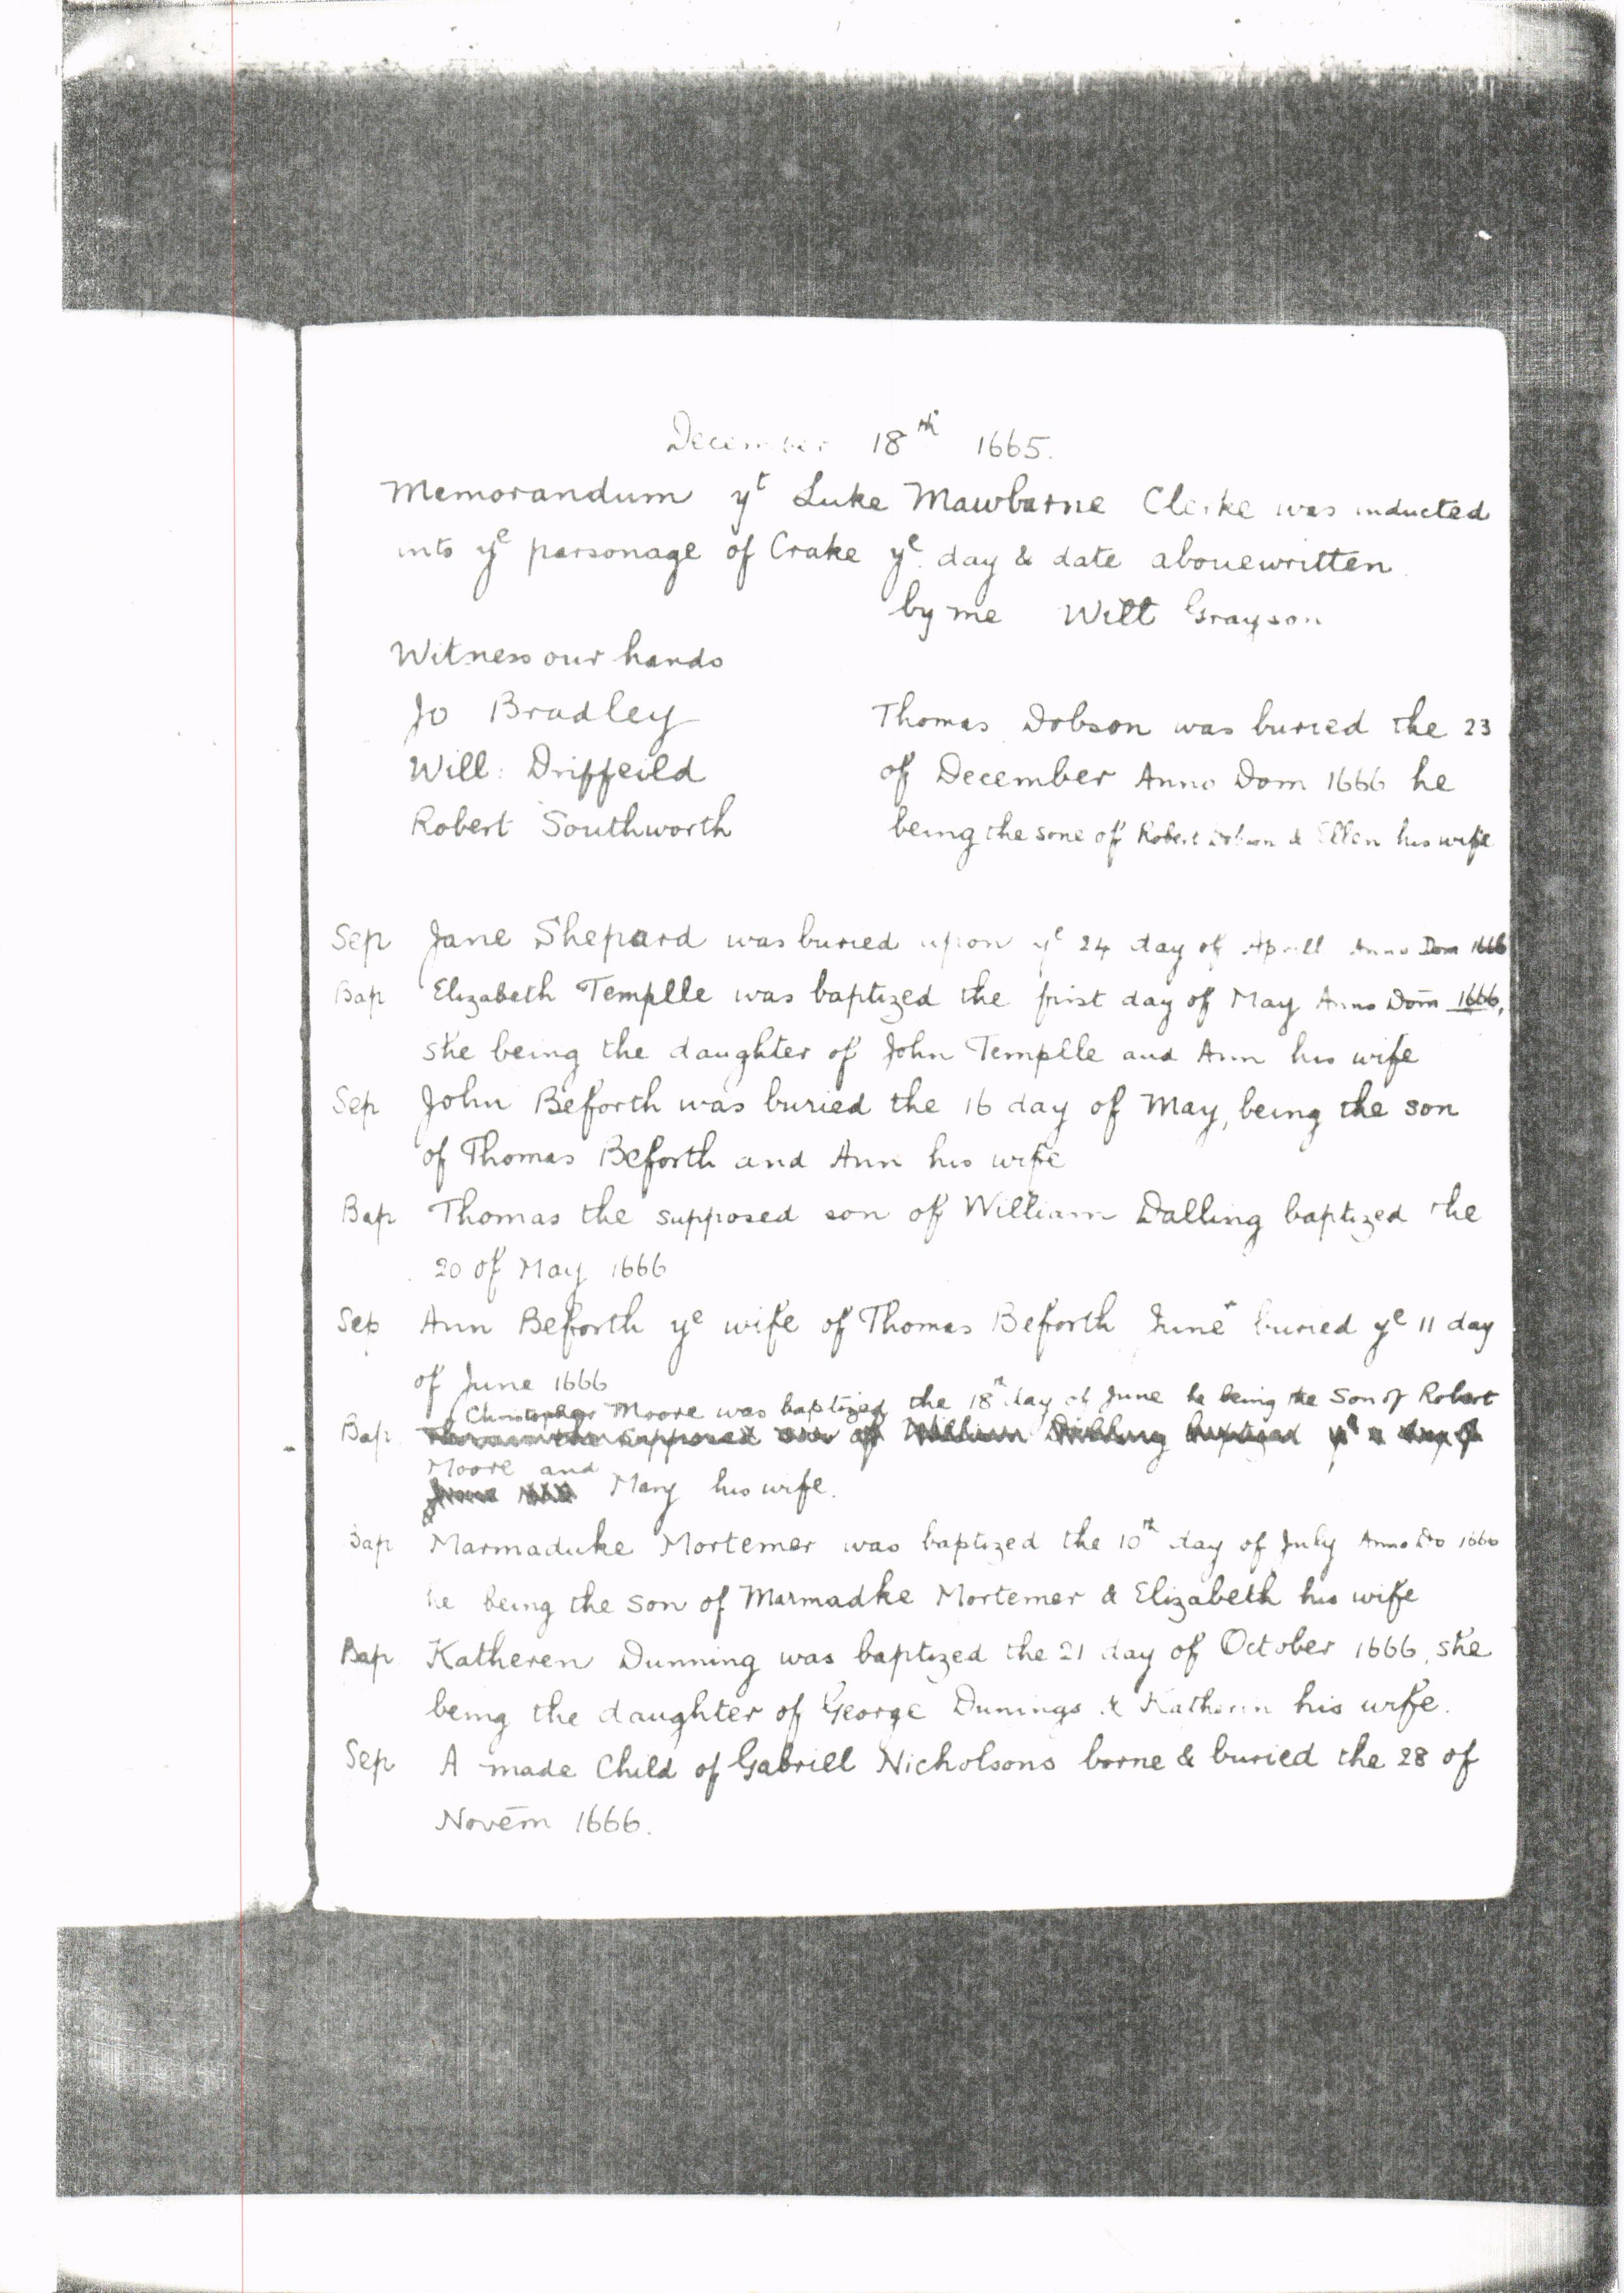 December 18th 1665.
Memorandum yt Luke Mawbarne Clerke was inducted
into ye parsonage of Crake ye day & date abouewritten
by me Will Grayson
Witness our hands
Jo Bradley
Will: Driffeild
Robert Southworth
Thomas Dobson was buried the 23
of December Anno Dom 1666 he
being the sone of Robert Dobson & Ellen his wife
Sep Jane Shepard was buried upon ye 24 day of Aprill Anno Dom 1666
Bap Elizabeth Templle was baptized the first day of May Anno Dom 1666,
she being the daughter of John Templle and Ann his wife
Sep John Beforth was buried the 16 day of May, being the son
of Thomas Beforth and Ann his wife
Bap Thomas the supposed son of William Dalling baptized the
20 of May 1666
Sep Ann Beforth ye wife of Thomas Beforth June buried ye 11 day
of June 1666
Christopher Moore was baptized the 18th day of June he being the Son of Robert
Bap supposed son of William Dalling baptized ye day of
Moore and
June 1666 Mary his wife.
Bap Marmaduke Mortemer was baptized the 10th day of July Anno Do 1666
he being the son of Marmadke Mortemer & Elizabeth his wife
Bap Katheren Dunning was baptized the 21 day of October 1666, she
being the daughter of George Dunings & Katherin his wife.
Sep A made Child of Gabriell Nicholsons borne & buried the 28 of
Novem 1666.